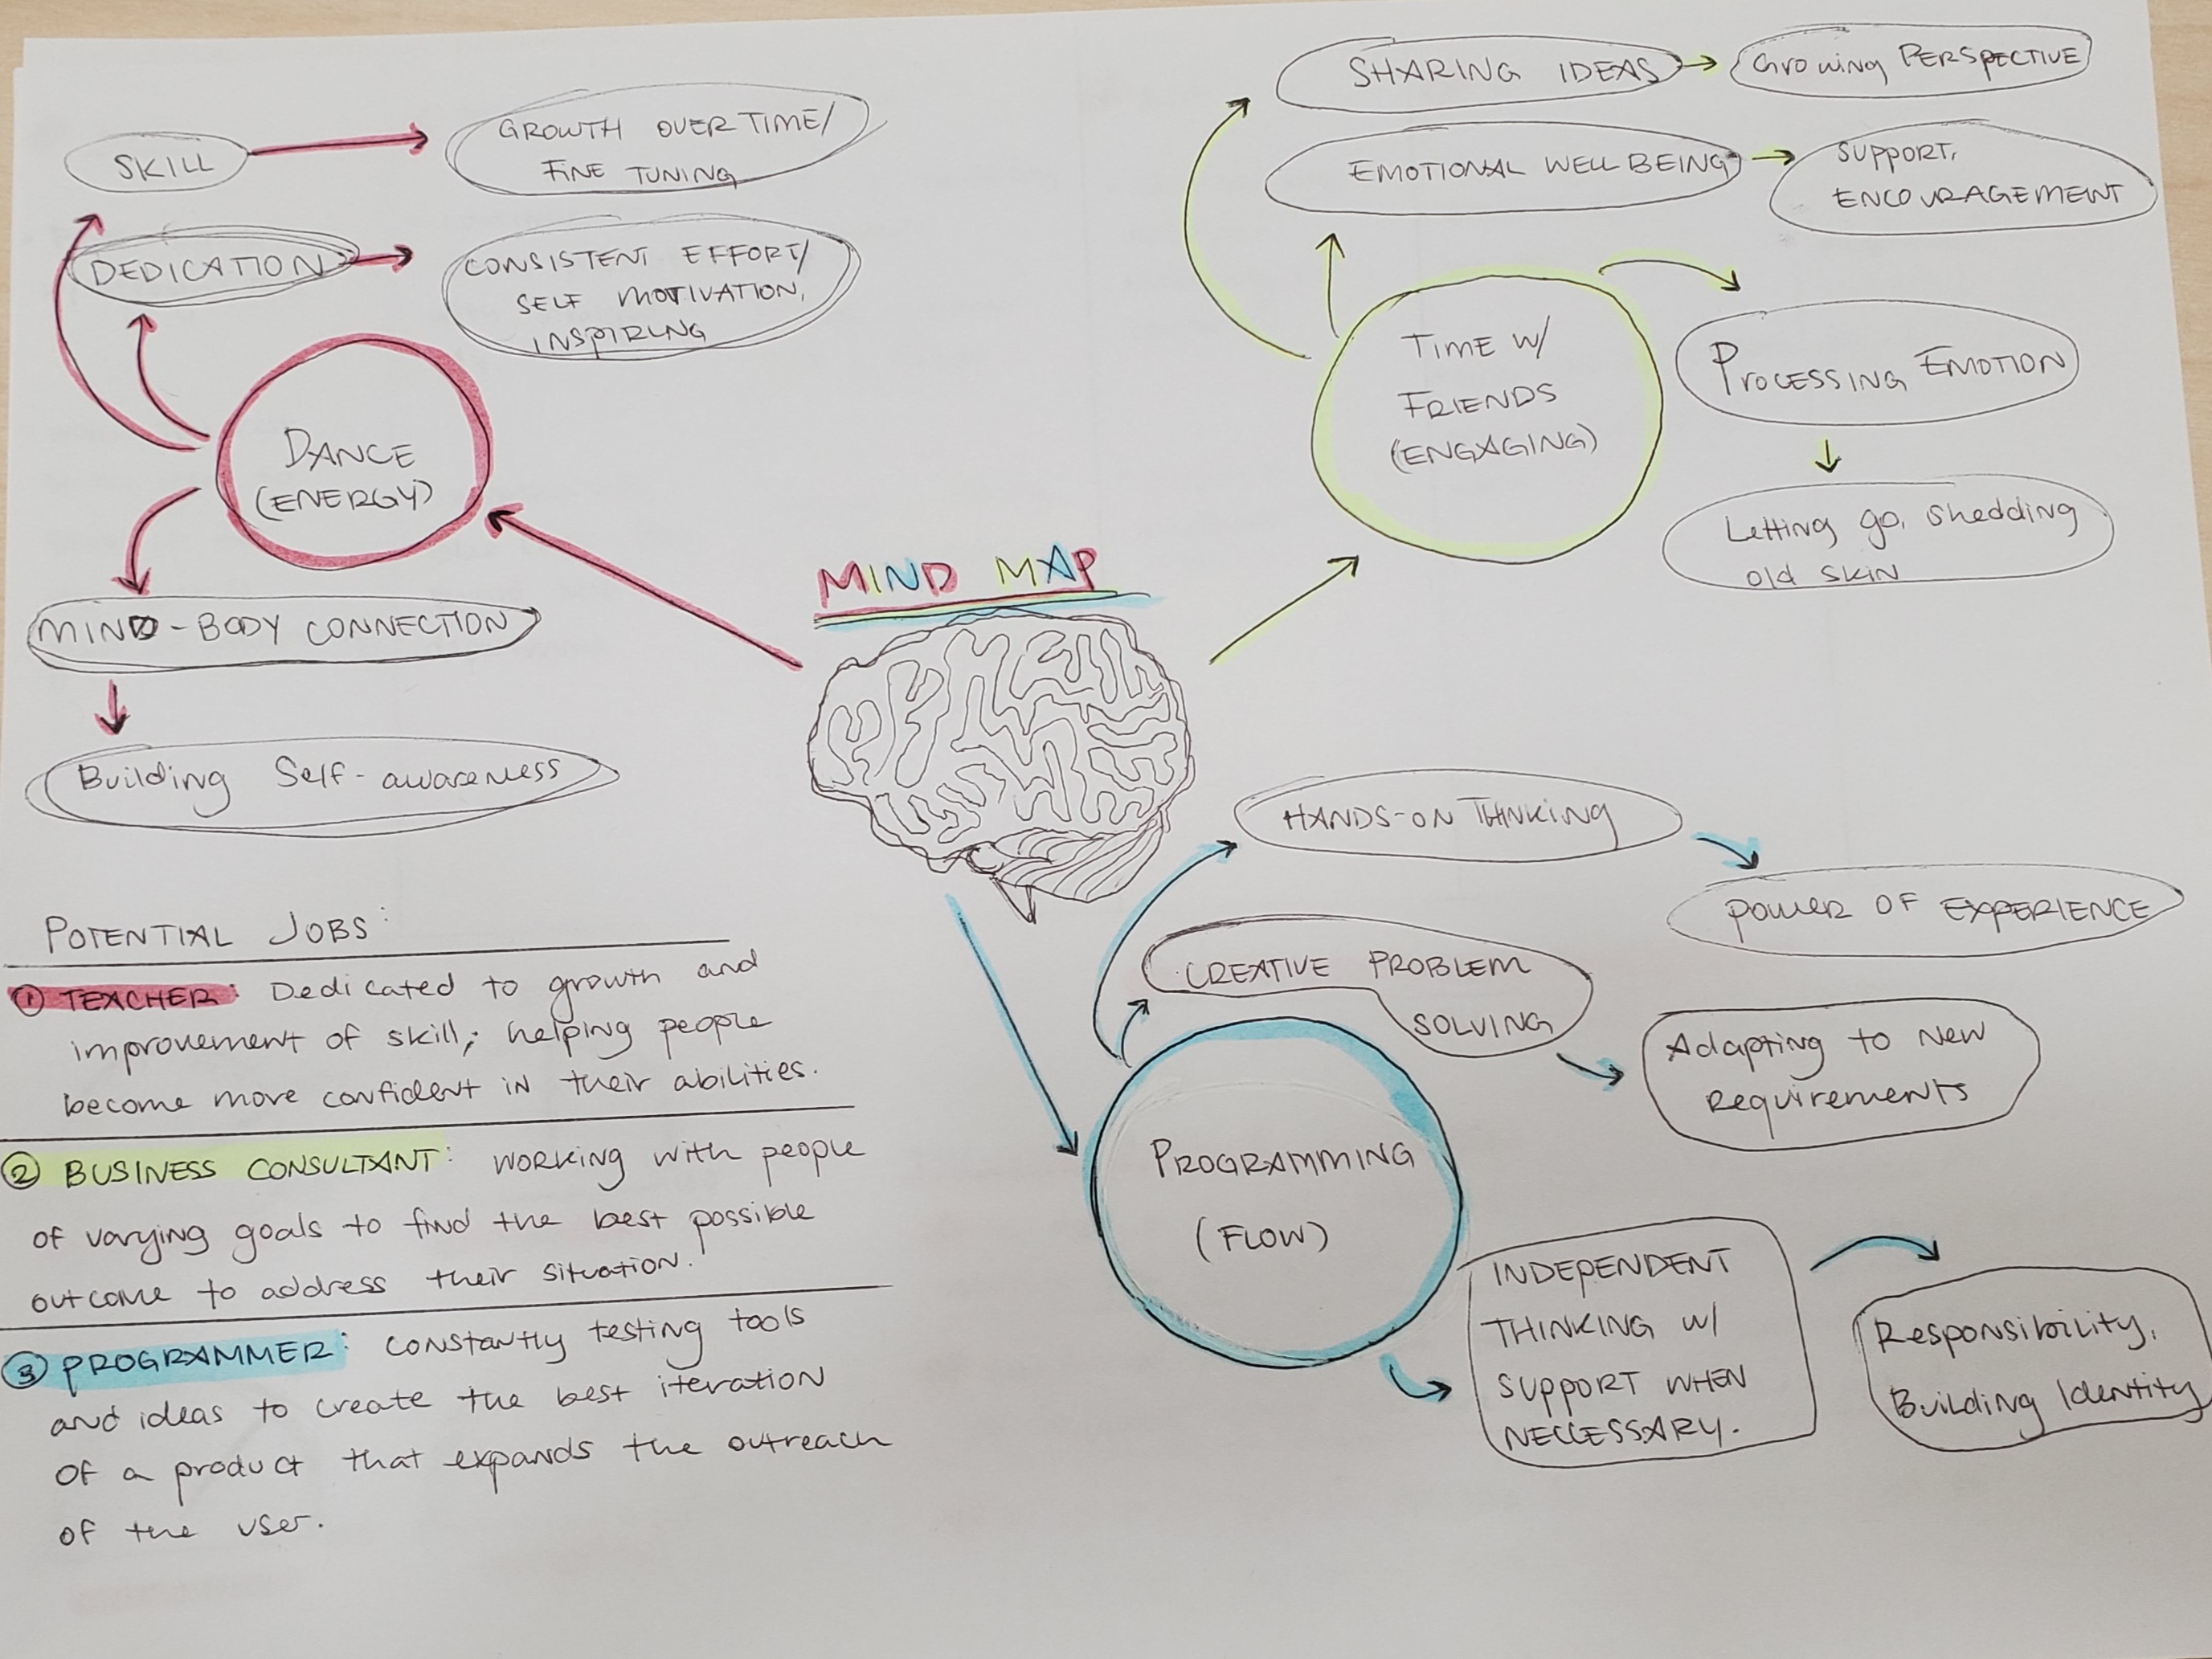 MIND MAP
DANCE
(ENERGY)
SKILL
GROWTH OVER TIME/
FINE TUNING
DEDICATION
CONSISTENT EFFORT/
SELF MOTIVATION,
INSPIRING
MIND-BODY CONNECTION
Building Self-awareness
TIME W/
FRIENDS
(ENGAGING)
SHARING IDEAS
Growing PERSPECTIVE
EMOTIONAL WELL BEING
SUPPORT,
ENCOURAGEMENT
PROCESSING EMOTION
Letting go, shedding
old skin
PROGRAMMING
(FLOW)
HANDS-ON THINKING
POWER OF EXPERIENCE
CREATIVE PROBLEM
SOLVING
Adapting to New
Requirements
INDEPENDENT
THINKING W/
SUPPORT WHEN
NECCESSARY.
Responsibility,
Building Identity
POTENTIAL JOBS:
① TEACHER: Dedicated to growth and
improvement of skill; helping people
become more confident in their abilities.
② BUSINESS CONSULTANT: working with people
of varying goals to find the best possible
outcome to address their situation.
③ PROGRAMMER: constantly testing tools
and ideas to create the best iteration
of a product that expands the outreach
of the user.